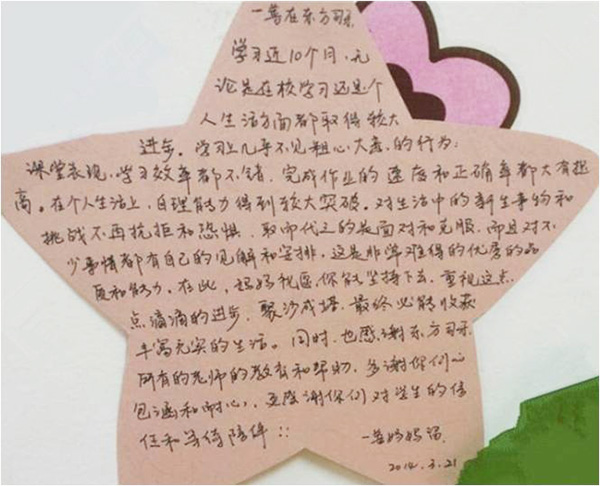 一善在东方司禾
学习近10个月,无
论是在校学习还是个
人生活方面都取得较大
进步。学习上几乎不见粗心大意的行为;
课堂表现、学习效率都不错,完成作业的速度和正确率都大有提
高。在个人生活上,自理能力得到较大突破。对生活中的新生事物和
挑战不再抗拒和恐惧,取而代之的是面对和克服。而且对不
少事情都有自己的见解和安排,这是非常难得的优秀的品
质和能力。在此,妈妈祝愿你能坚持下去,重视这点
点滴滴的进步,聚沙成塔,最终必能收获
丰富充实的生活。同时,也感谢东方司禾
所有的老师的教育和帮助,多谢你们的
包涵和耐心,更感谢你们对学生的信
任和等待陪伴::
一善妈妈
2014.3.21